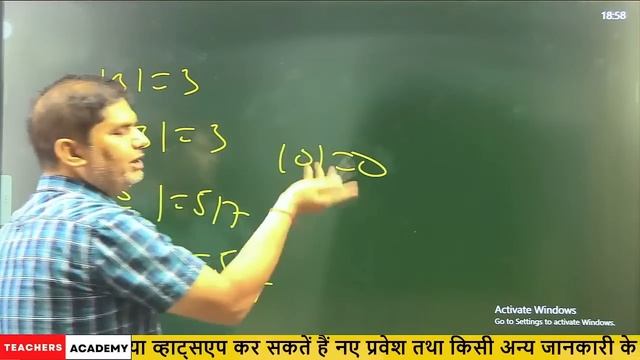 18:58
|3|=3
3|=3
|0|=0
|=5/7
=5
Activate Windows
Go to Settings to activate Windows.
TEACHERS ACADEMY
या व्हाट्सएप कर सकतें हैं नए प्रवेश तथा किसी अन्य जानकारी के